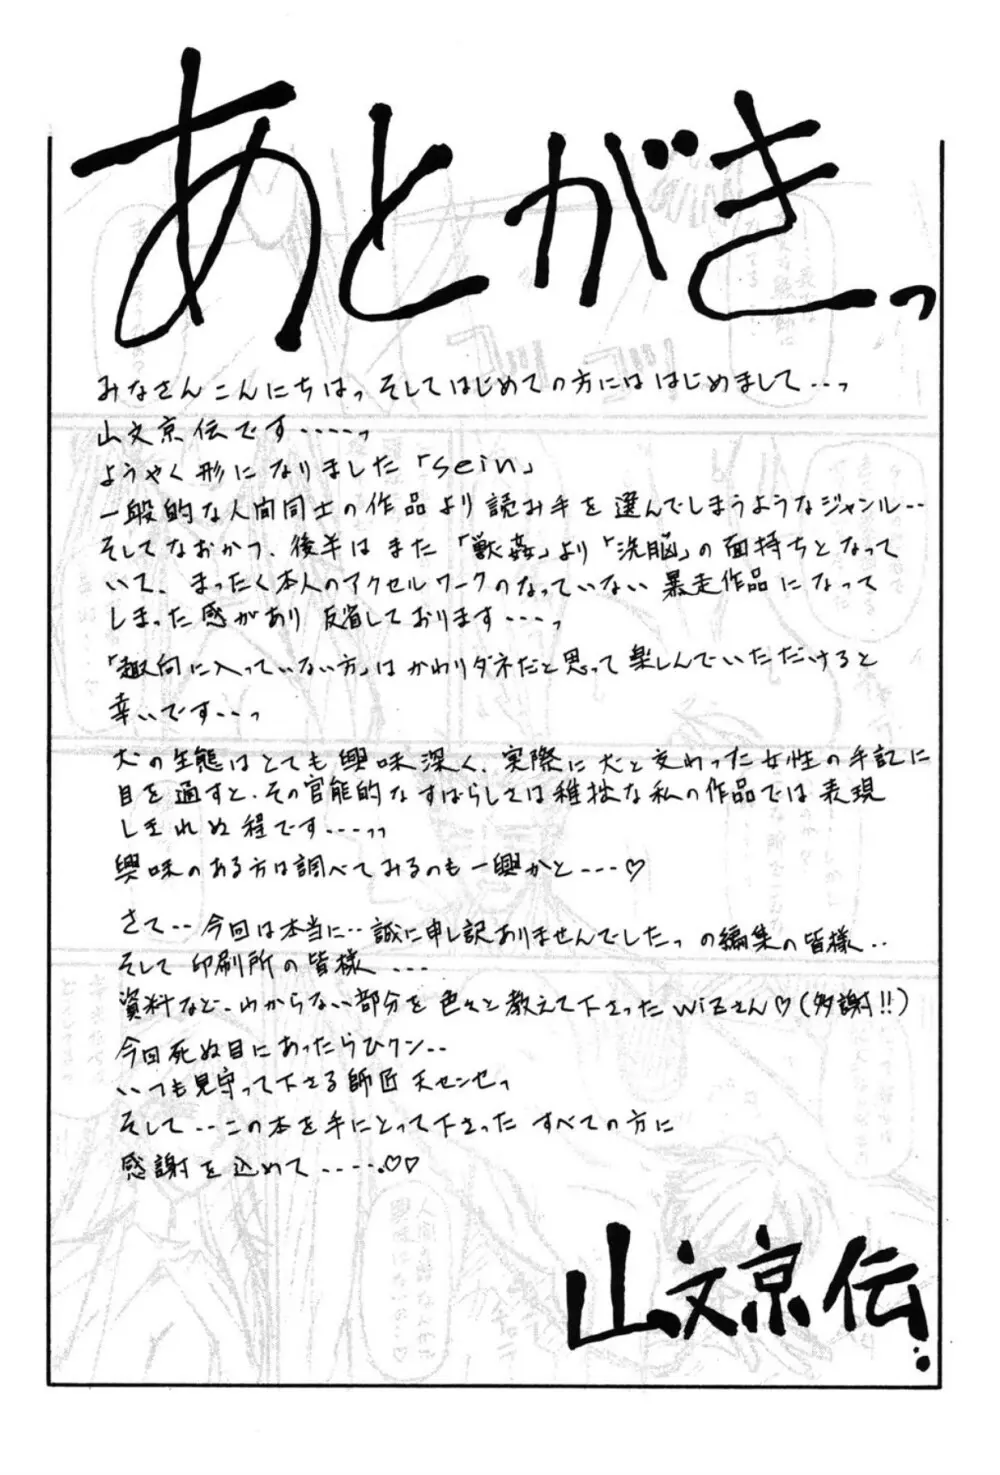 あとがきっ
みなさんこんにちはっ そしてはじめての方には はじめまして‥っ
山文京伝です‥‥っ
ようやく形になりました「sein」
一般的な人間同士の作品より読み手を選んでしまうようなジャンル‥
そしてなおかつ、後半はまた「獣姦」より「洗脳」の面持ちとなって
いて、まったく本人のアクセルワークのなっていない暴走作品になって
しまった感があり 反省しております‥‥っ
「趣向に入っていない方」は かわりダネだと思って楽しんでいただけると
幸いです‥‥っ
犬の生態はとても興味深く、実際に犬と交わった女性の手記に
目を通すと、その官能的なすばらしさは稚拙な私の作品では表現
しきれぬ程です‥‥っっ
興味のある方は調べてみるのも一興かと‥‥♡
さて‥今回は本当に‥誠に申し訳ありませんでしたっ の編集の皆様‥
そして印刷所の皆様‥‥
資料など、わからない部分を色々と教えて下さったwizさん♡(多謝!!)
今回死ぬ目にあったらひクン‥
いつも見守って下さる師匠天センセっ
そして‥この本を手にとって下さった すべての方に
感謝を込めて‥‥‥♡♡
山文京伝